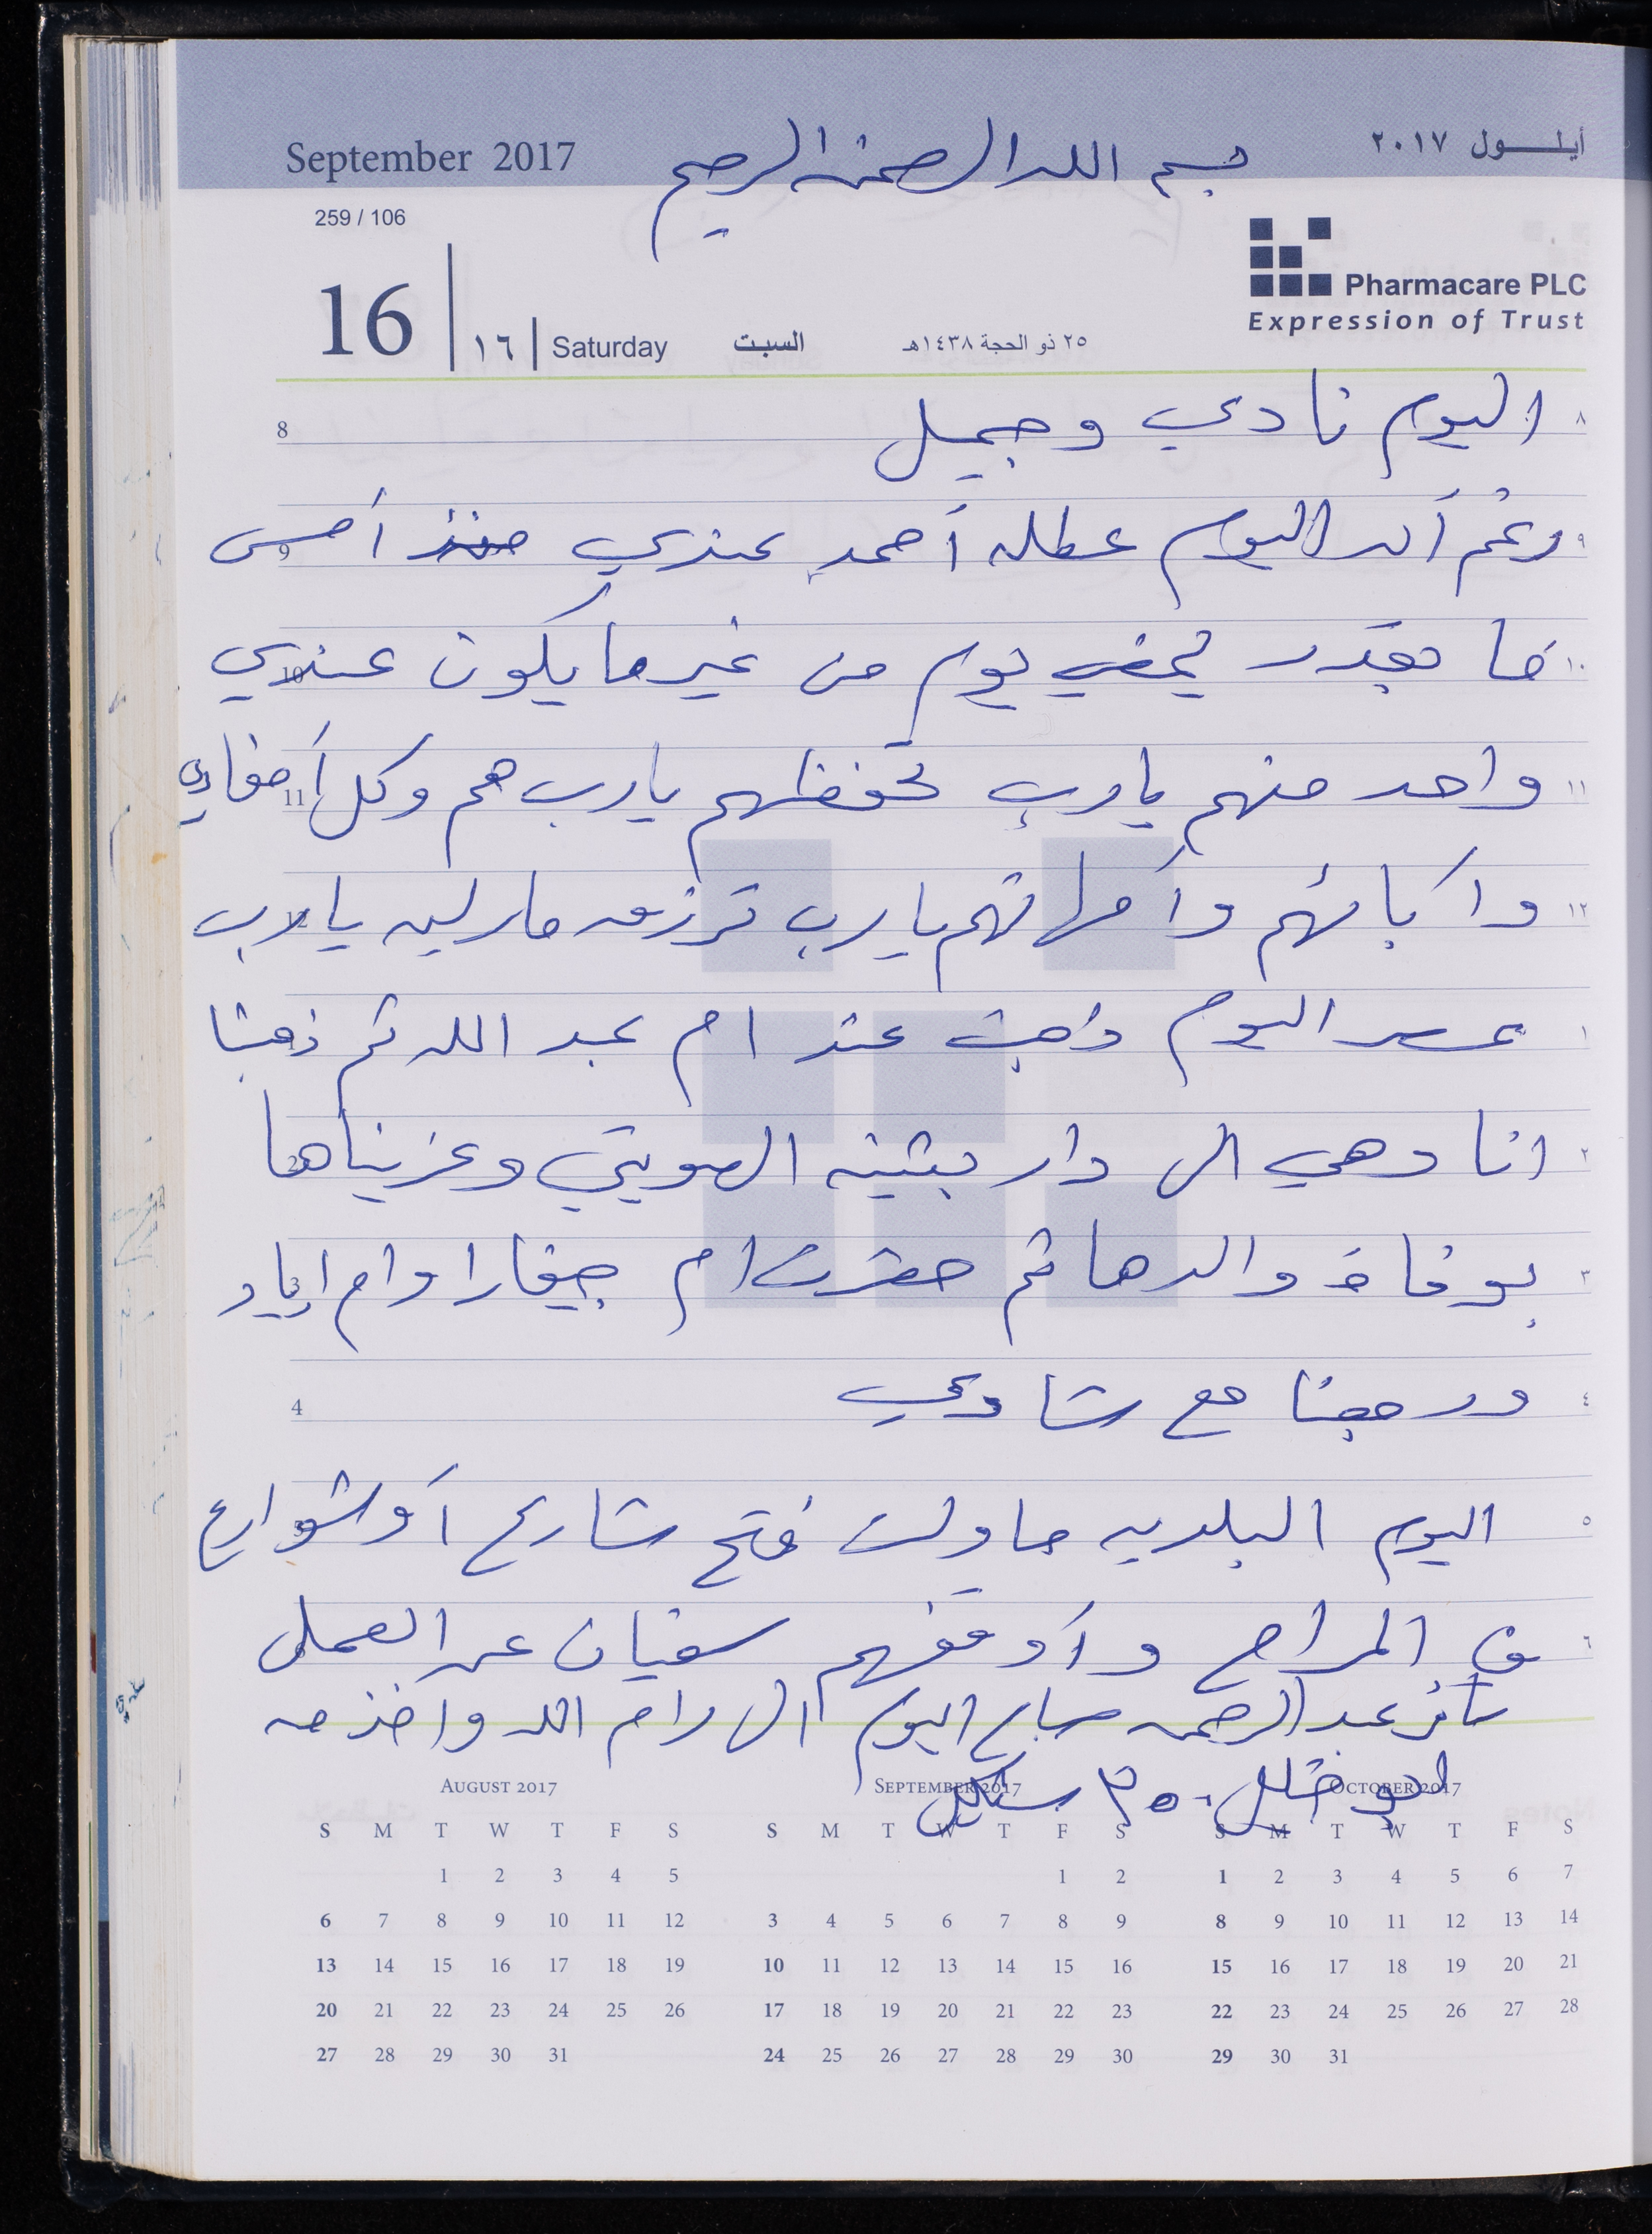 September 2017
بسم الله الرحمن الرحيم
أيلول ٢٠١٧
259 / 106
Pharmacare PLC
Expression of Trust
16 | ١٦ | Saturday السبت ٢٥ ذو الحجة ١٤٣٨هـ
8 اليوم نادي وجميل ٨
9 رغم أن اليوم عطله أحمد عندي منذ أمس ٩
10 ما بقدر يمضي يوم من غير ما يكون عندي ١٠
11 واحد منهم يارب تحفظهم يارب هم وكل أحفادي ١١
12 وأبائهم وأمهاتهم يارب ترزق مارلين يارب ١٢
عصر اليوم ذهبت عند ام عبد الله ثم ذهبنا ١
2 انا وهي الى دار بثينه الهويتي وعزيناها ٢
3 بوفاة والدها ثم حضرت ام جيفارا وام اياد ٣
4 ورجعنا مع شادي ٤
5 اليوم البلديه حاولت فتح شارع أو شوارع ٥
في المراح وأوقفهم سفيان عن العمل ٦
سافر عبد الرحمن صباح اليوم الى رام الله واخذ معه
٢٥٠ شيكل
AUGUST 2017
S M T W T F S
1 2 3 4 5
6 7 8 9 10 11 12
13 14 15 16 17 18 19
20 21 22 23 24 25 26
27 28 29 30 31
SEPTEMBER 2017
S M T W T F S
1 2
3 4 5 6 7 8 9
10 11 12 13 14 15 16
17 18 19 20 21 22 23
24 25 26 27 28 29 30
OCTOBER 2017
S M T W T F S
1 2 3 4 5 6 7
8 9 10 11 12 13 14
15 16 17 18 19 20 21
22 23 24 25 26 27 28
29 30 31